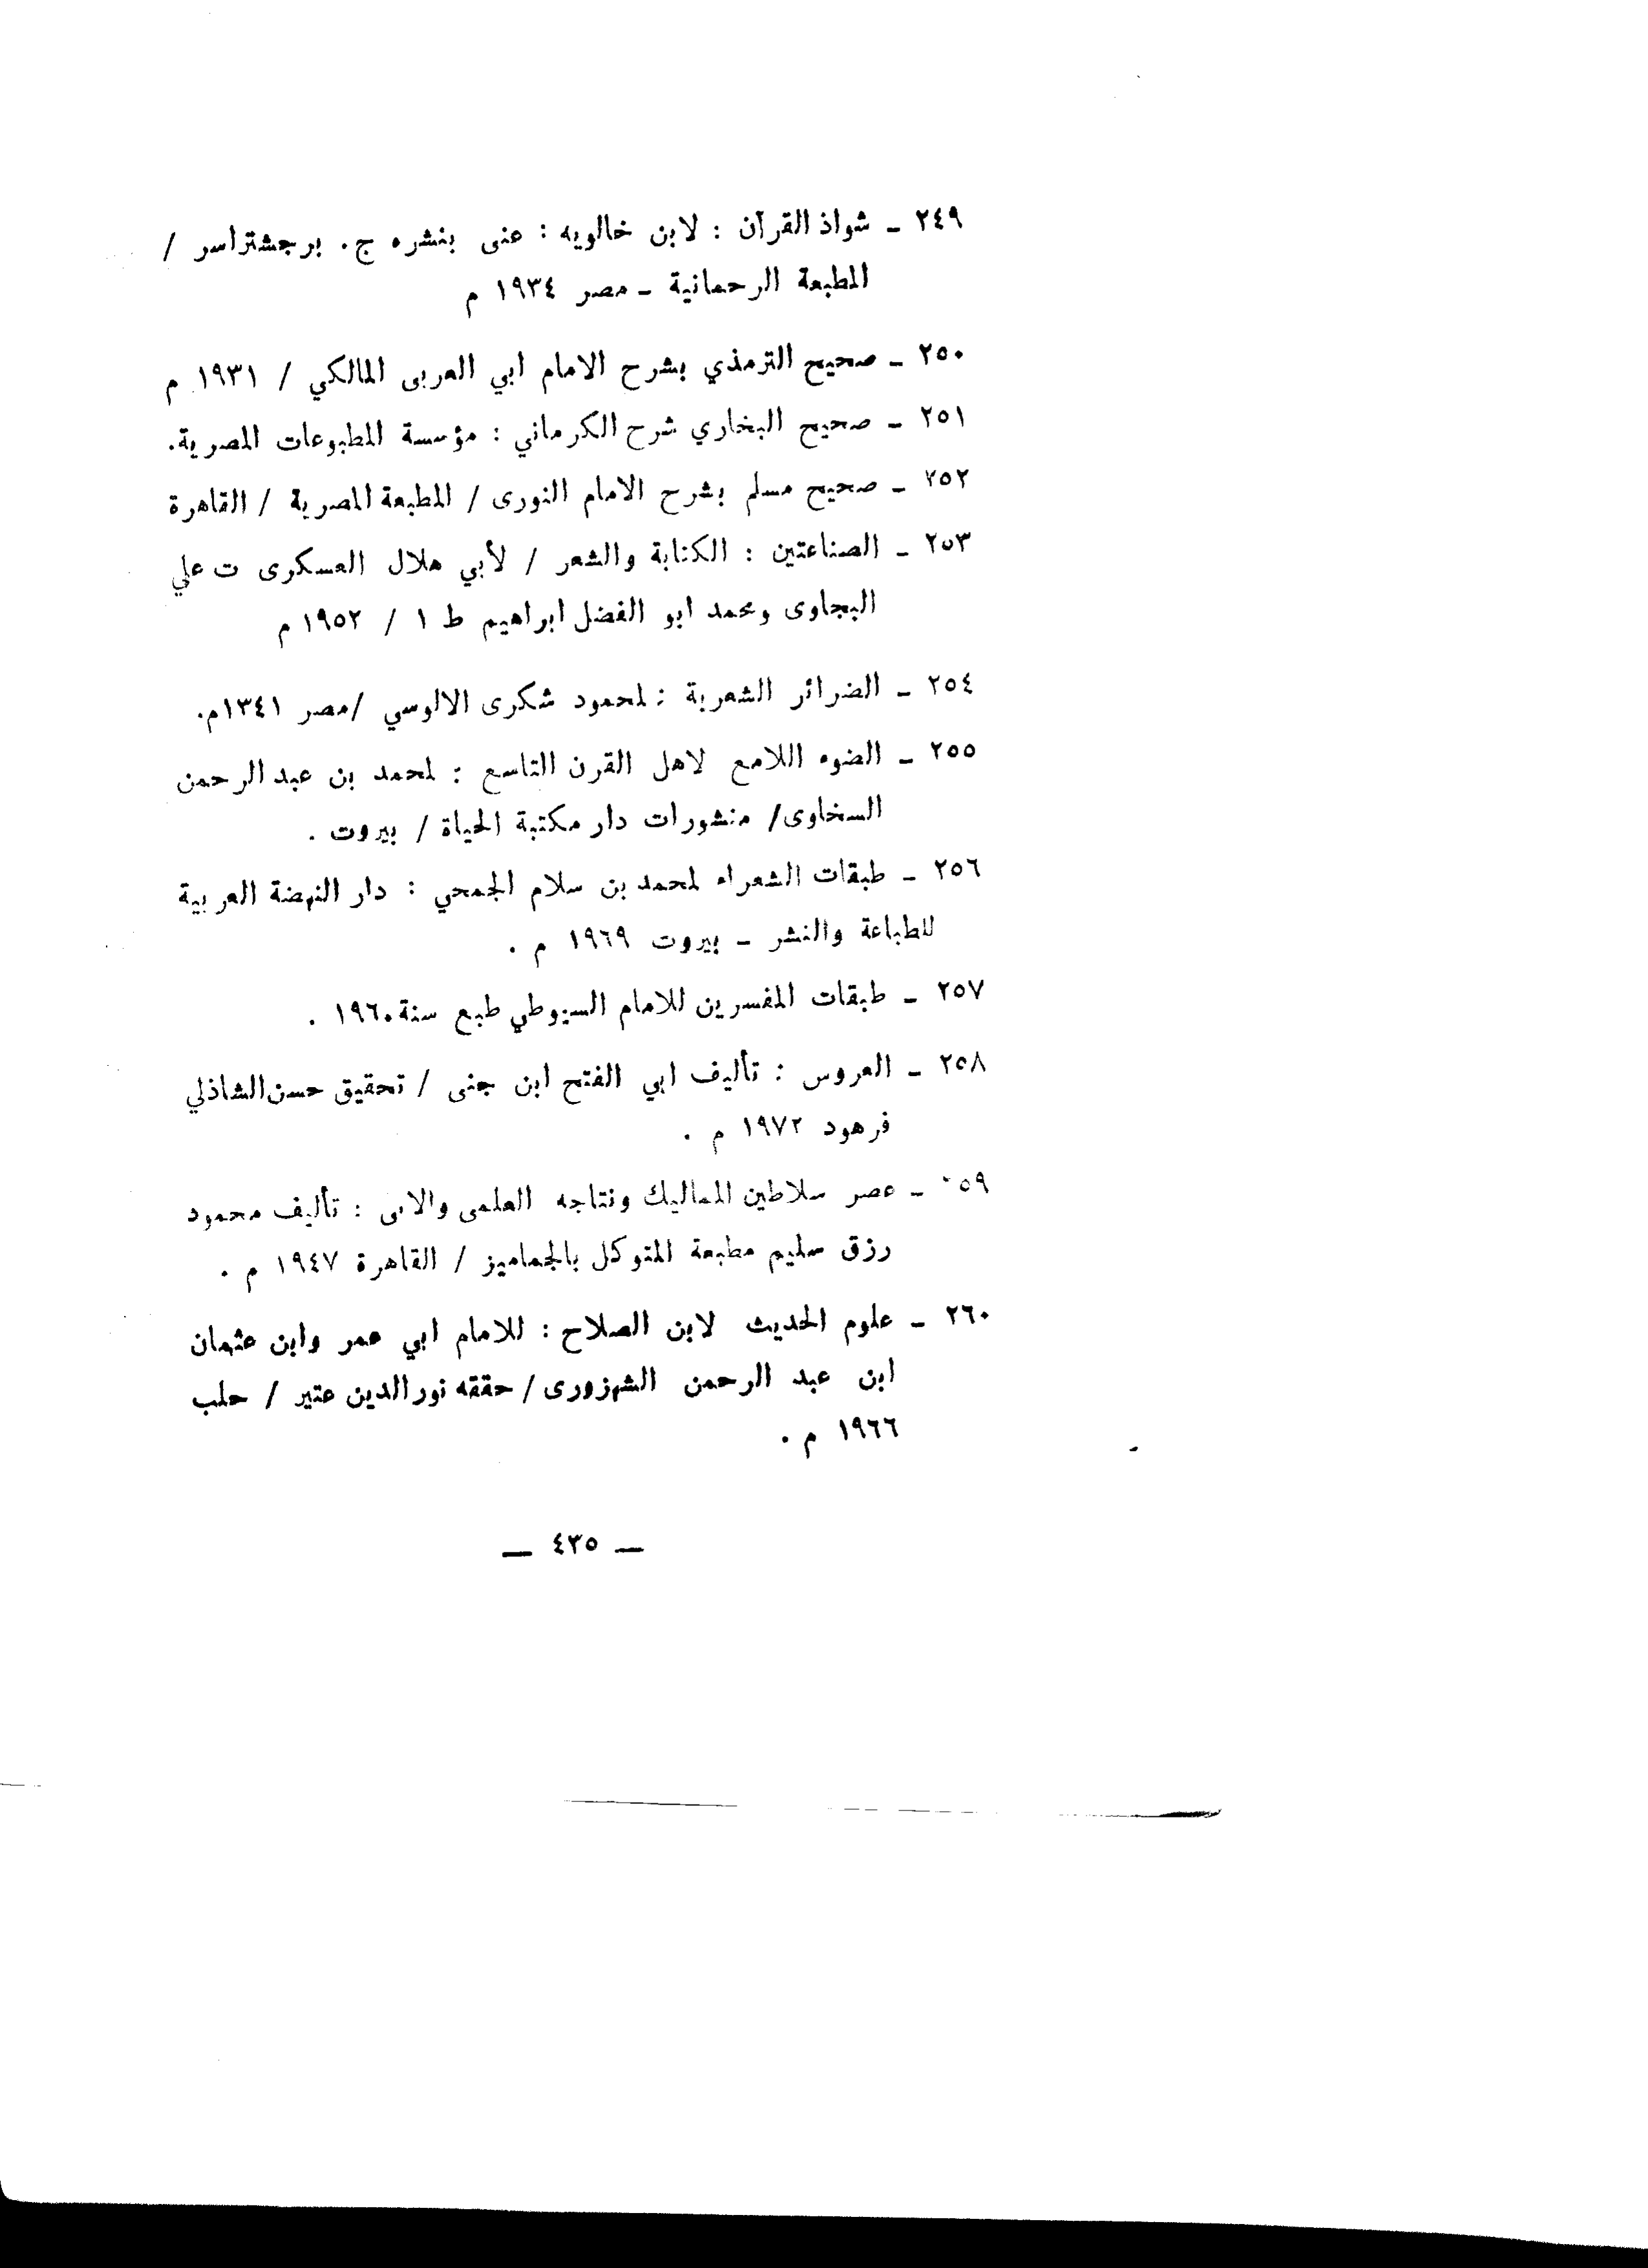 ٢٤٩ ـ شواذ القرآن : لابن خالويه : عنى بنشره ج. برجشتراسر /
المطبعة الرحمانية ـ مصر ١٩٣٤ م
٢٥٠ ـ صحيح الترمذي بشرح الامام ابي العربى المالكي / ١٩٣١ م
٢٥١ ـ صحيح البخاري شرح الكرماني : مؤسسة المطبوعات المصرية.
٢٥٢ ـ صحيح مسلم بشرح الامام النورى / المطبعة المصرية / القاهرة
٢٥٣ ـ الصناعتين : الكتابة والشعر / لأبي هلال العسكرى ت علي
البجاوى ومحمد ابو الفضل ابراهيم ط ١ / ١٩٥٢ م
٢٥٤ ـ الضرائر الشعرية : لمحمود شكرى الالوسي /مصر ١٣٤١م.
٢٥٥ ـ الضوء اللامع لاهل القرن التاسع : لمحمد بن عبد الرحمن
السخاوى/ منشورات دار مكتبة الحياة / بيروت .
٢٥٦ ـ طبقات الشعراء لمحمد بن سلام الجمحي : دار النهضة العربية
للطباعة والنشر ـ بيروت ١٩٦٩ م .
٢٥٧ ـ طبقات المفسرين للامام السيوطي طبع سنة ١٩٦٠ .
٢٥٨ ـ العروس : تأليف ابي الفتح ابن جنى / تحقيق حسن الشاذلي
فرهود ١٩٧٢ م .
٥٩ ـ عصر سلاطين المماليك ونتاجه العلمى : تأليف محمود
رزق سليم مطبعة المتوكل بالجماميز / القاهرة ١٩٤٧ م .
٢٦٠ ـ علوم الحديث لابن الصلاح : للامام ابي عمر وابن عثمان
ابن عبد الرحمن الشهزورى / حققه نور الدين عتير / حلب
١٩٦٦ م .
ـ ٤٣٥ ـ